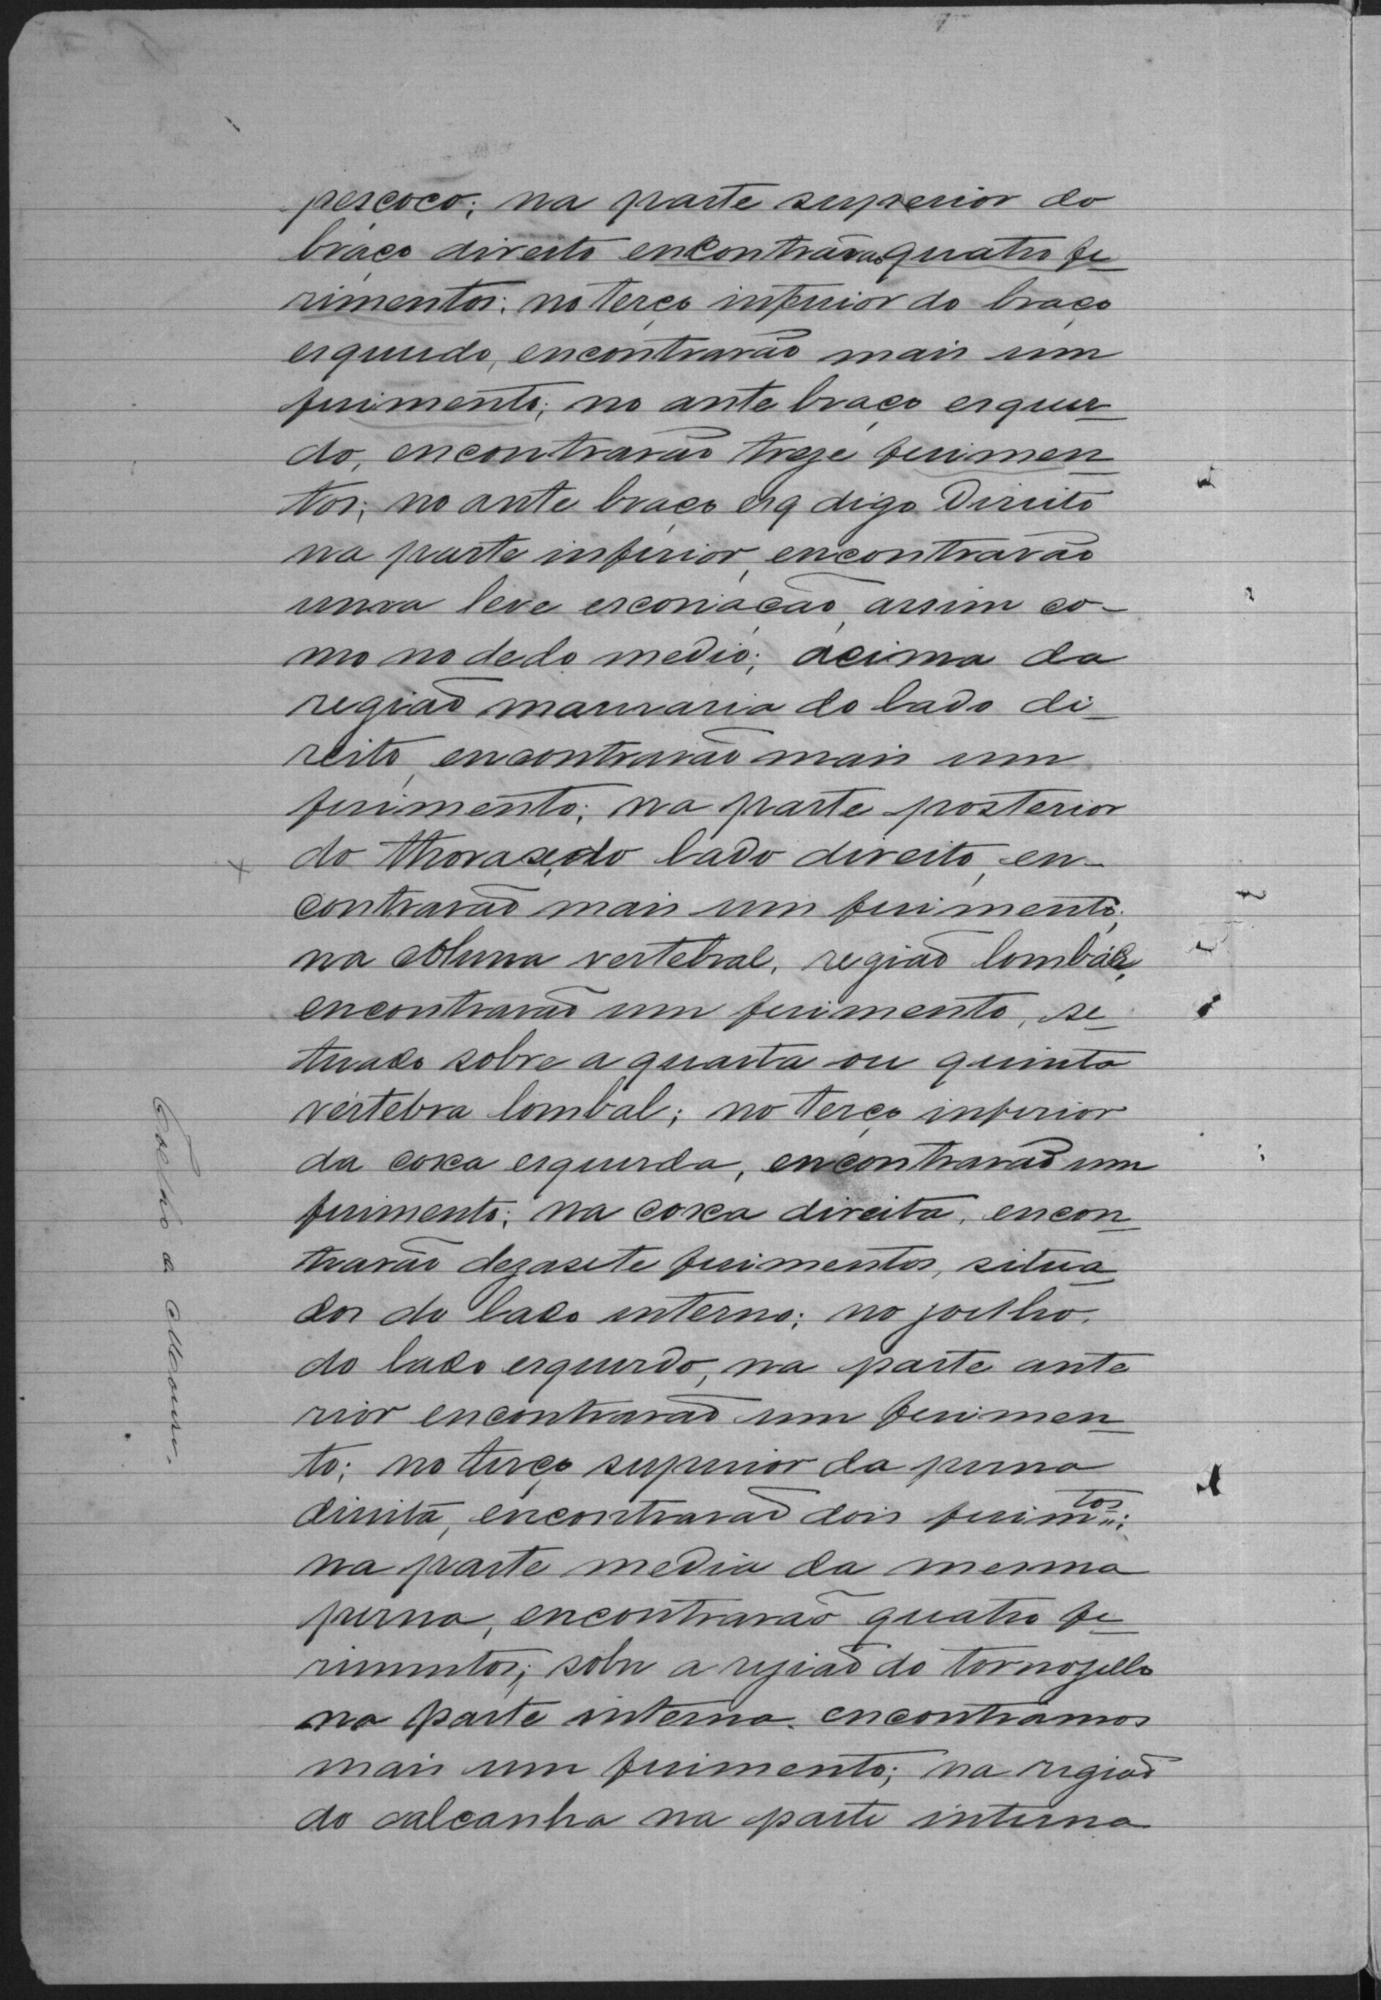 pescoco; na parte superior do
braço direito encontrarão quatro fe_
rimentos; no terço inferior do braço
esquerdo, encontrarão mais um
ferimento; no ante braço esquer_
do, encontrarão treze ferimen_
tos; no ante braço esq digo Direito
na parte inferior, encontrarão
uma leve escoriação, assim co-
mo no dedo medio; acima da
região mamaria do lado di_
reito, encontrarão mais um
ferimento; na parte posterior
do thorax, do lado direito, en-
contrarão mais um ferimento;
na coluna vertebral, região lombar,
encontrarão um ferimento, se_
tuado sobre a quarta ou quinta
vertebra lombal; no terço inferior
da coxa esquerda, encontrarão um
ferimento; na coxa direita, encon_
trarão dezasete ferimentos, situa_
dos do lado interno; no joelho,
do lado esquerdo, na parte ante
rior encontrarão um ferimen_
to; no terço superior da perna
direita, encontrarão dois ferimtos;
na parte media da mesma
perna, encontrarão quatro fe_
rimentos; sobre a região do tornozello
na parte interna, encontramos
mais um ferimento; na região
do calcanha na parte interna